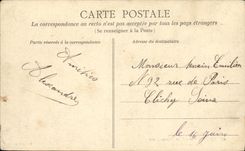 CARTE POSTALE
La correspondance au recto n'est pas acceptée par tous les pays étrangers
(Se renseigner à la Poste)
Partie réservée à la correspondance
Adresse du destinataire
Amitiés
Alexandre
Monsieur Emilien
N 92 rue de Paris
Clichy Seine
le 4 juin